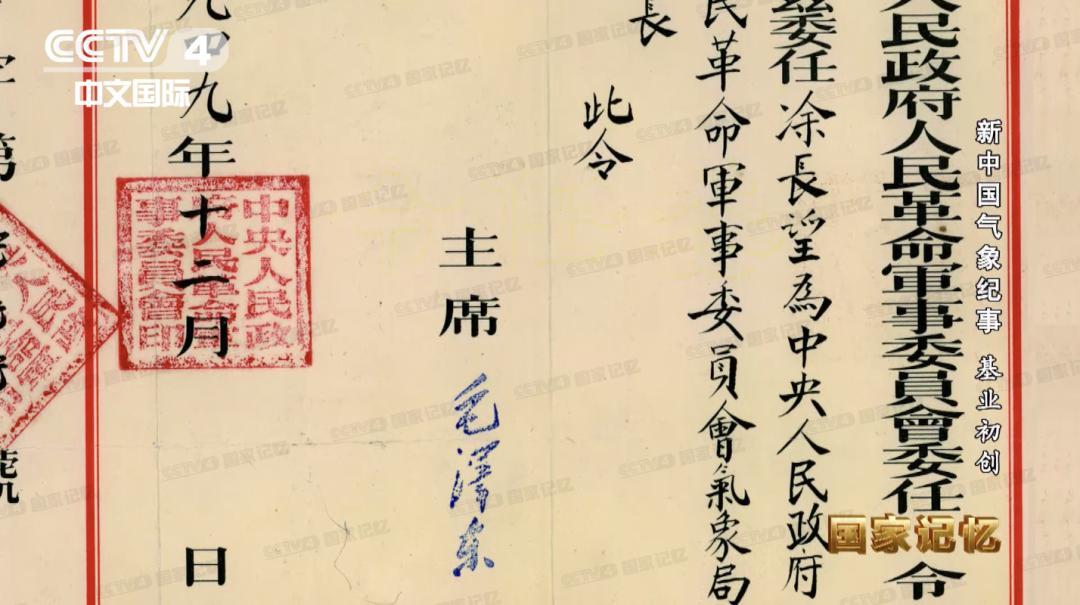 人民政府人民革命軍事委員會委任令
兹委任涂長望為中央人民政府
民革命軍事委員會氣象局
長
此令
主席
毛澤东
九四九年十二月 日
字第
號
中央人民政
府人民革命軍
事委員會印
CCTV 4
中文国际
新中国气象纪事 基业初创
国家记忆
CCTV4 国家记忆